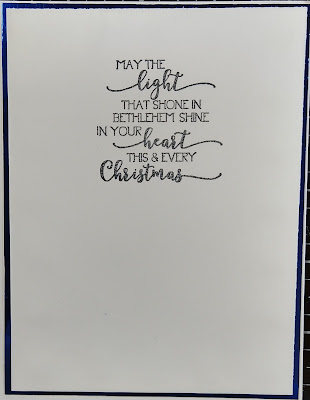 MAY THE
light
THAT SHONE IN
BETHLEHEM SHINE
IN YOUR
heart
THIS & EVERY
Christmas